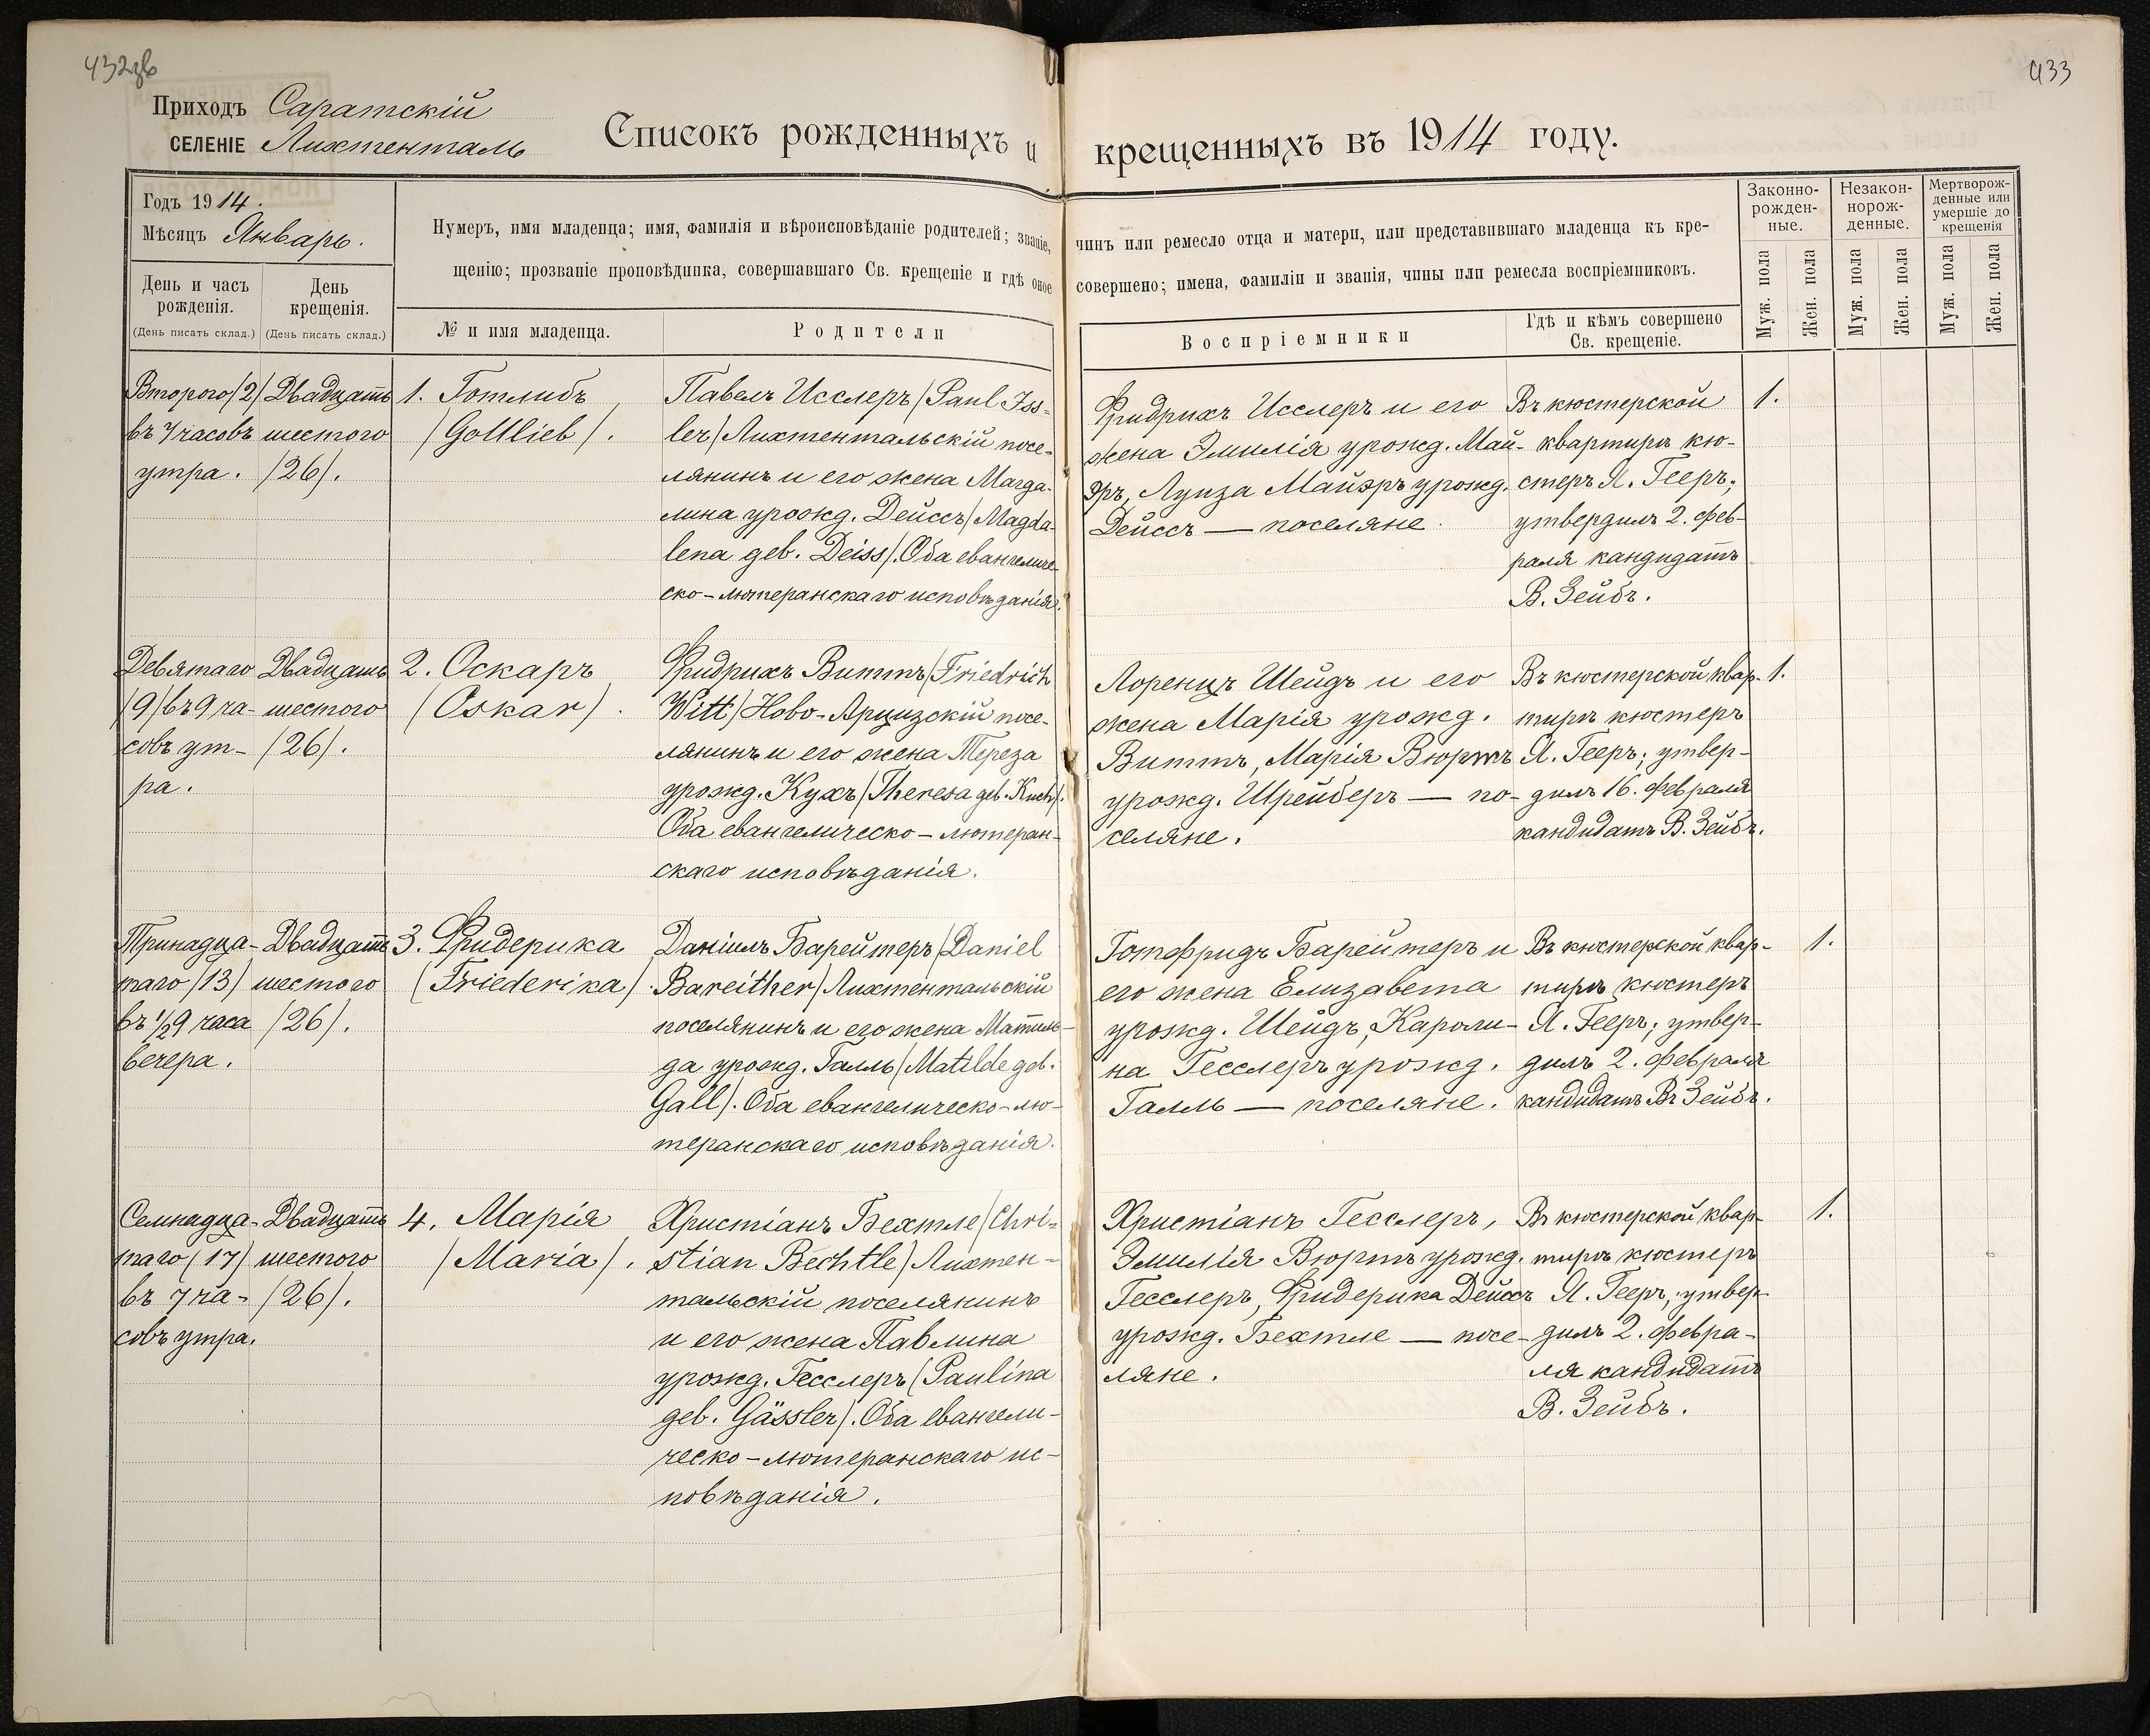 432зв
433
Приходъ Саратскій
СЕЛЕНІЕ Лихтенталь
Списокъ рожденныхъ и крещенныхъ въ 1914 году.
Годъ 1914.
Мѣсяцъ Январь.
День и часъ рожденія.
(День писать склад.)
День крещенія.
(День писать склад.)
Нумеръ, имя младенца; имя, фамилія и вѣроисповѣданіе родителей; званіе, чинъ или ремесло отца и матери, или представившаго младенца къ кре-
щенію; прозваніе проповѣдника, совершавшаго Св. крещеніе и гдѣ оное совершено; имена, фамиліи и званія, чины или ремесла воспріемниковъ.
№ и имя младенца.
Родители
Воспріемники
Гдѣ и кѣмъ совершено
Св. крещеніе.
Законно-
рожден-
ные.
Незакон-
норож-
денные.
Мертворож-
денные или
умершіе до
крещенія
Муж. пола
Жен. пола
Муж. пола
Жен. пола
Муж. пола
Жен. пола
Второго /2/
въ 7 часовъ
утра.
Двадцать
шестого
/26/.
1. Готлибъ
/Gottlieb/.
Павелъ Исслеръ /Paul Iss-
ler/ Лихтентальскій посе-
лянинъ и его жена Магда-
лина урожд. Дейссъ /Magda-
lena geb. Deiss/. Оба евангеличе-
ско-лютеранскаго исповѣданія.
Фридрихъ Исслеръ и его
жена Эмилія урожд. Май-
эръ, Луиза Майэръ урожд.
Дейссъ — поселяне.
Въ кюстерской
квартирѣ кю-
стеръ Я. Гееръ;
утвердилъ 2. фев-
раля кандидатъ
В. Зейбъ.
1.
Девятаго
/9/ въ 9 ча-
совъ ут-
ра.
Двадцать
шестого
/26/.
2. Оскаръ
/Oskar/.
Фридрихъ Виттъ /Friedrich
Witt/ Ново-Арцизскій посе-
лянинъ и его жена Тереза
урожд. Кухъ /Theresa geb. Kuch/.
Оба евангелическо-лютеран-
скаго исповѣданія.
Лоренцъ Шейдъ и его
жена Марія урожд.
Виттъ, Марія Вюртъ
урожд. Шрейберъ — по-
селяне.
Въ кюстерской квар-
тирѣ кюстеръ
Я. Гееръ; утвер-
дилъ 16. февраля
кандидатъ В. Зейбъ.
1.
Тринадца-
таго /13/
въ 1/29 часа
вечера.
Двадцать
шестого
/26/.
3. Фридерика
/Friederika/.
Даніилъ Барейтеръ /Daniel
Bareither/ Лихтентальскій
поселянинъ и его жена Матиль-
да урожд. Галль /Matilde geb.
Gall/. Оба евангелическо-лю-
теранскаго исповѣданія.
Готфридъ Барейтеръ и
его жена Елизавета
урожд. Шейдъ, Кароли-
на Гесслеръ урожд.
Галль — поселяне.
Въ кюстерской квар-
тирѣ кюстеръ
Я. Гееръ; утвер-
дилъ 2. февраля
кандидатъ В. Зейбъ.
1.
Семнадца-
таго /17/
въ 7 ча-
совъ утра.
Двадцать
шестого
/26/.
4. Марія
/Maria/.
Христіанъ Бехтле /Chri-
stian Bechtle/ Лихтен-
тальскій поселянинъ
и его жена Павлина
урожд. Гесслеръ /Paulina
geb. Gässler/. Оба евангели-
ческо-лютеранскаго ис-
повѣданія.
Христіанъ Гесслеръ,
Эмилія Вюртъ урожд.
Гесслеръ, Фридерика Дейссъ
урожд. Бехтле — посе-
ляне.
Въ кюстерской квар-
тирѣ кюстеръ
Я. Гееръ; утвер-
дилъ 2. февра-
ля кандидатъ
В. Зейбъ.
1.